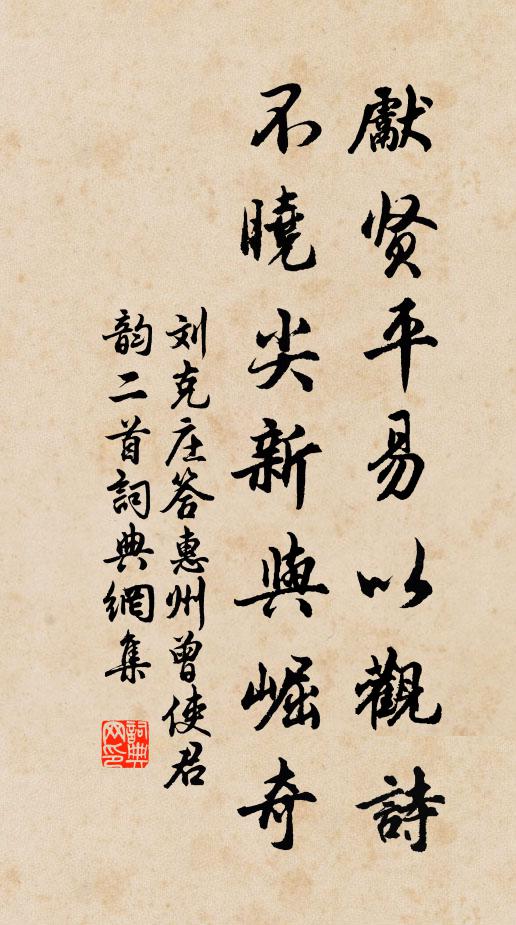 獻贤平易以觀詩
不曉尖新與崛奇
刘克庄答惠州曾使君
韵二首詞典網集
詞典网印